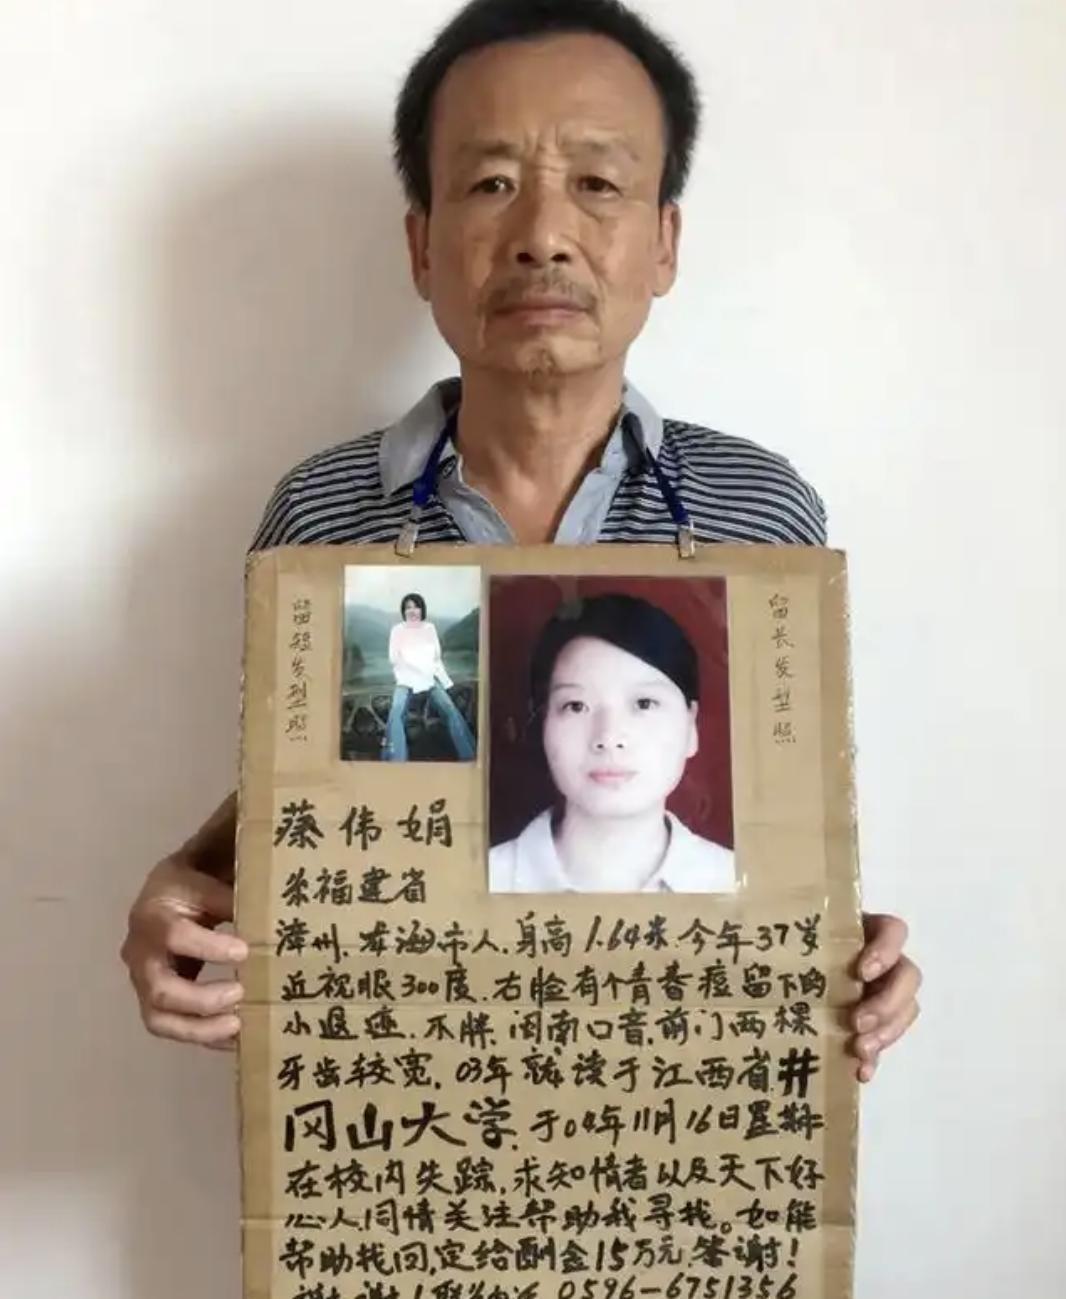 留短发型照
留长发型照
蔡伟娟
系福建省
漳州.龙海市人.身高1.64米.今年37岁
近视眼300度.右脸有个青春痘留下的
小退迹.不胖.闽南口音.前门两棵
牙齿较宽.03年就读于江西省井
冈山大学.于04年11月16日星期
在校内失踪.求知情者以及天下好
心人.同情关注帮助我寻找。如能
帮助找回,定给酬金15万元答谢!
谢谢!联 0596-6751356